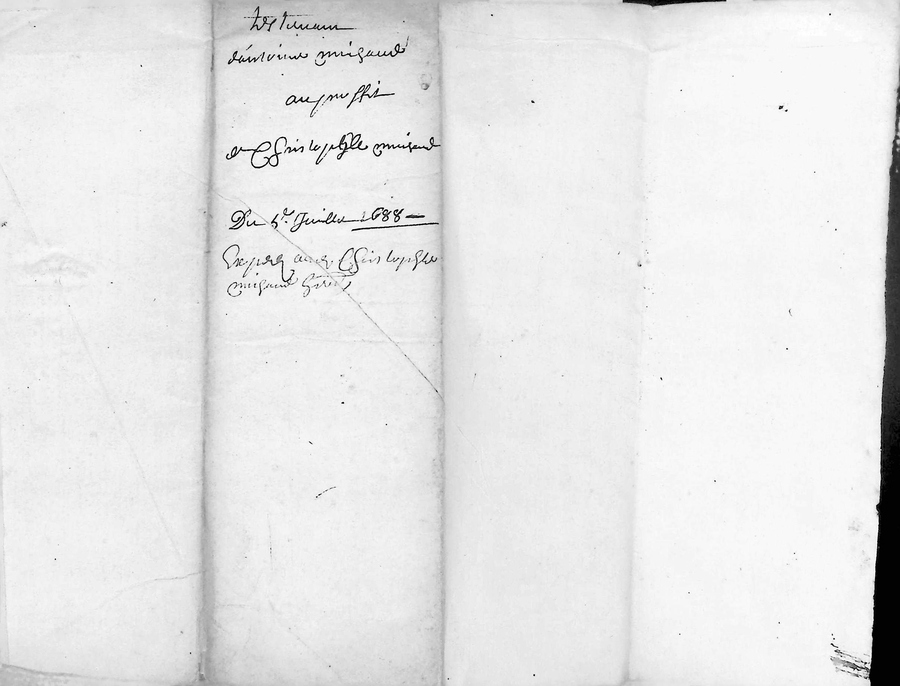 testamant
d'antoine migaud
au proffit
de Christophle migaud
Du 5e. Juillet 1688
Expedié audit Christophle
migaud